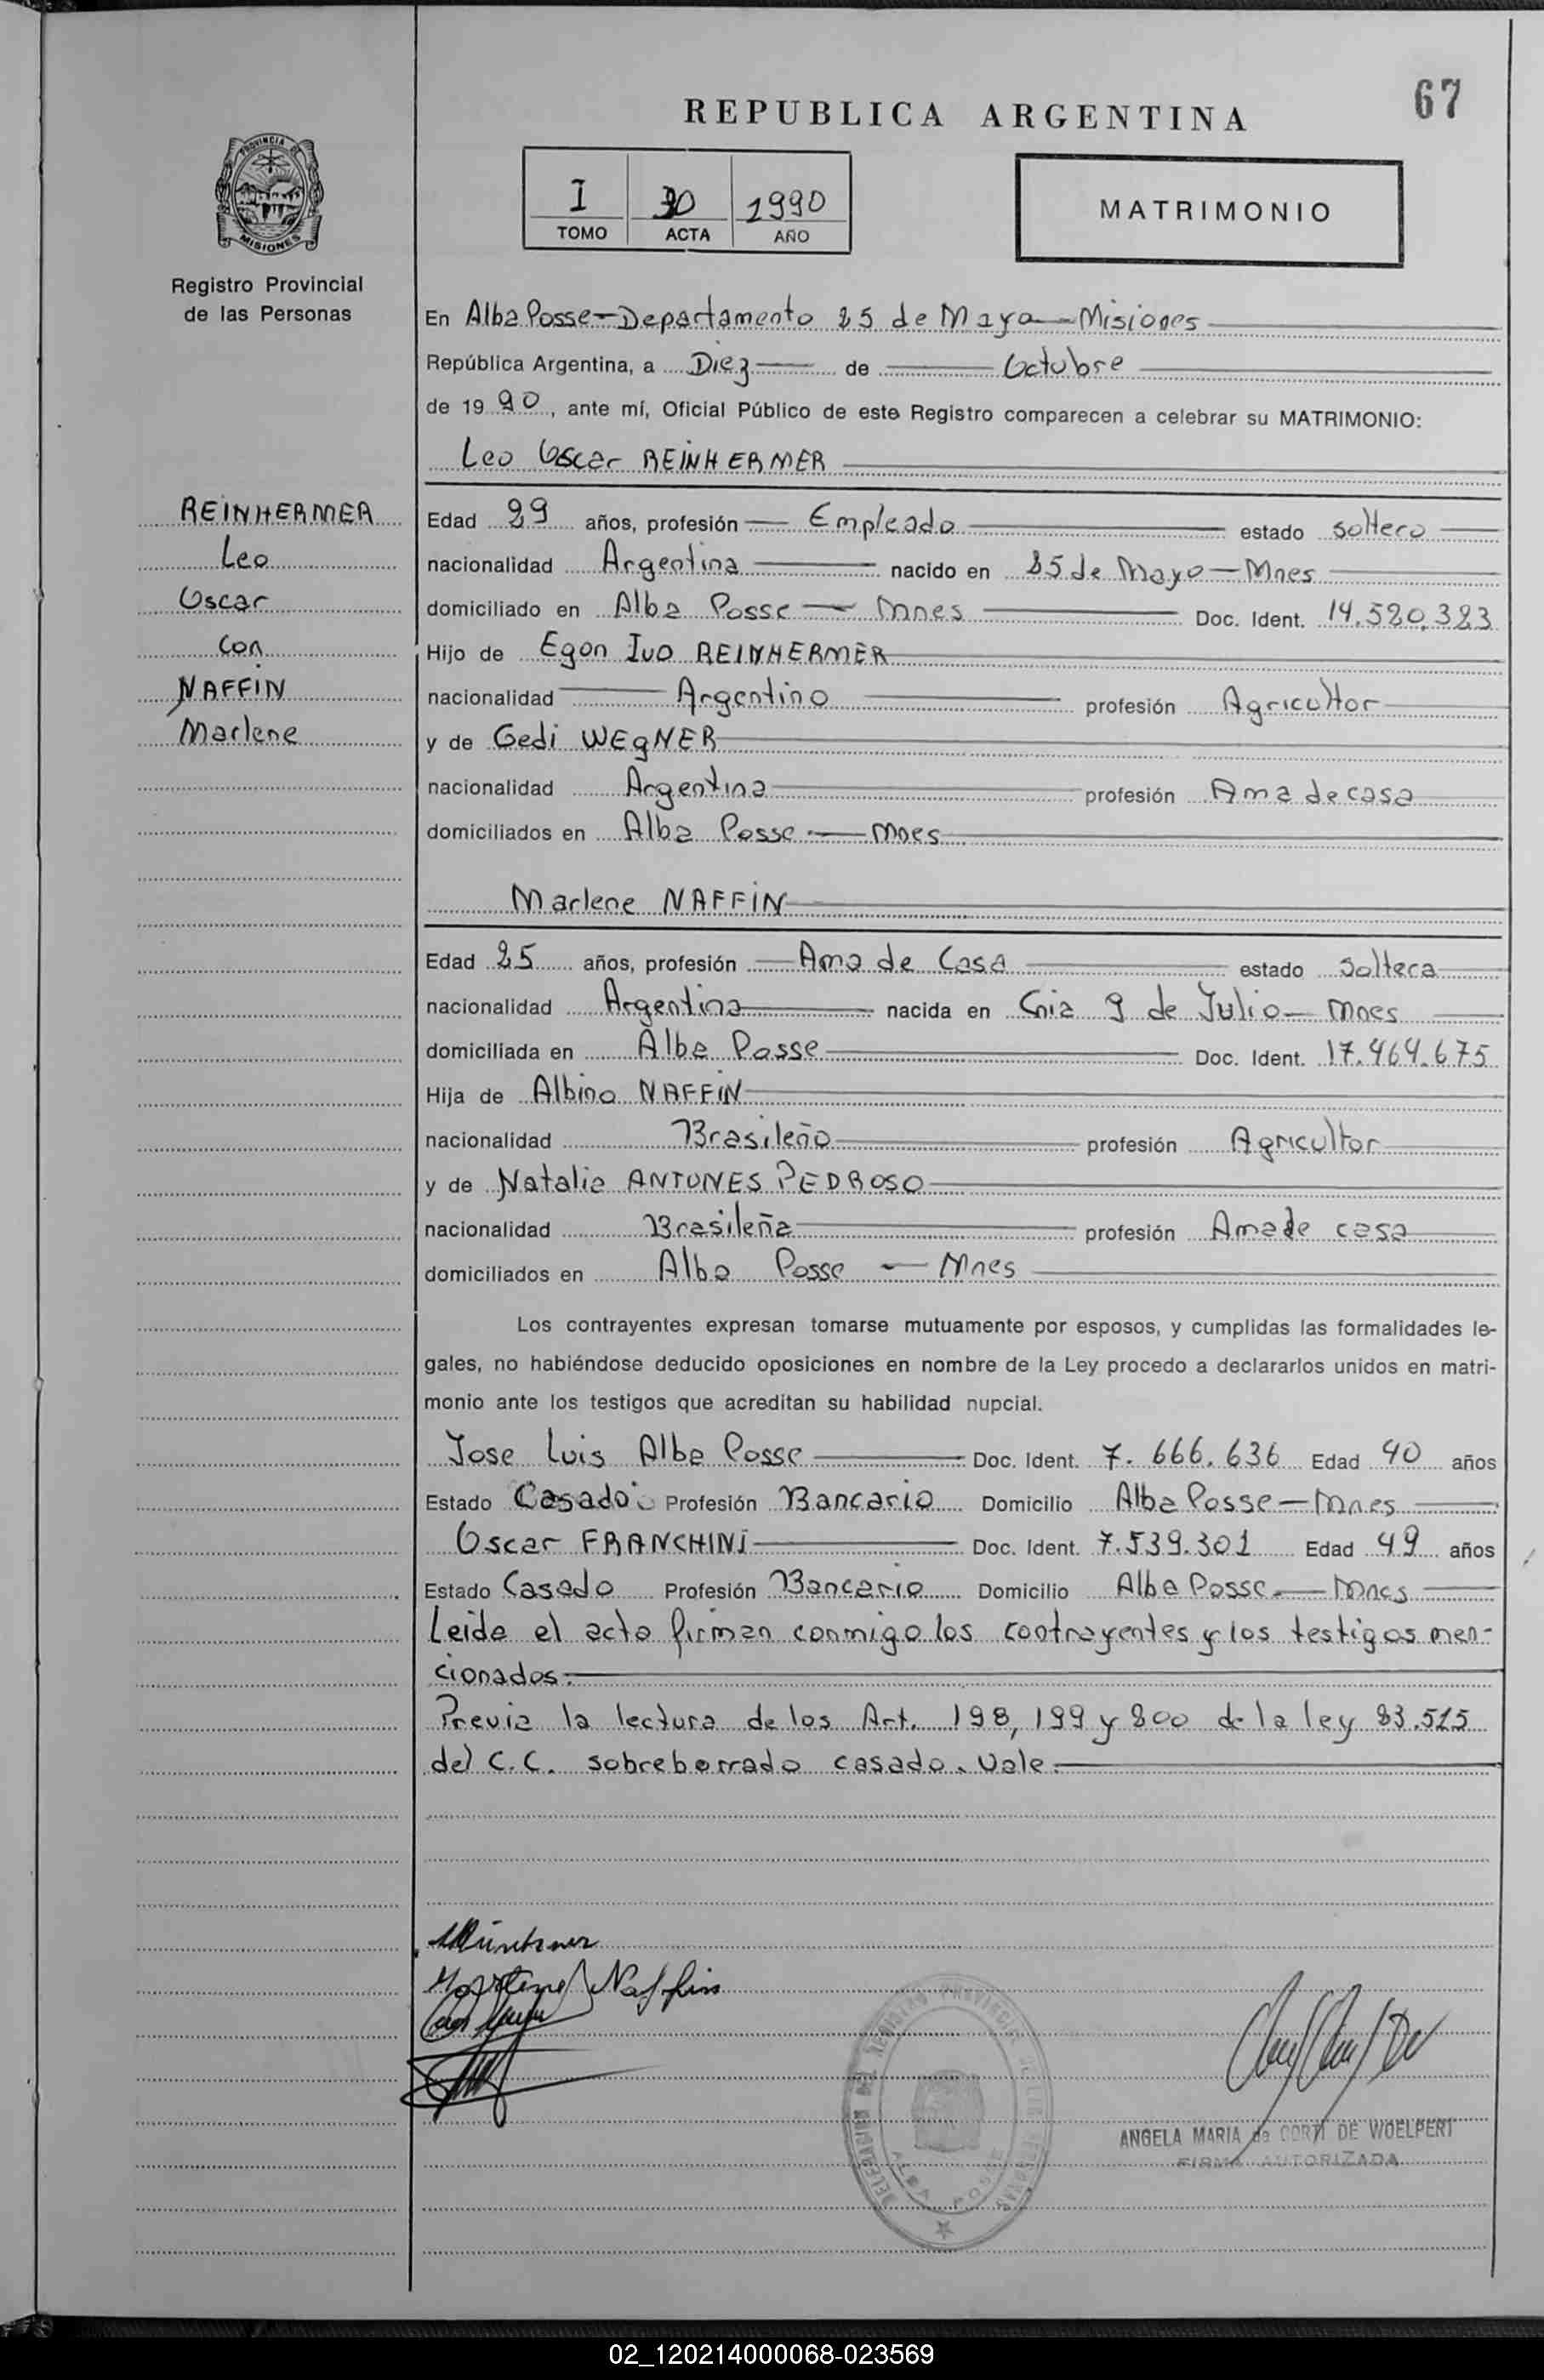 67
REPUBLICA ARGENTINA
I 30 1990
TOMO ACTA AÑO
MATRIMONIO
PROVINCIA DE
MISIONES
Registro Provincial
de las Personas
REINHERMER
Leo
Oscar
con
NAFFIN
Marlene
En Alba Posse - Departamento 25 de Mayo - Misiones
República Argentina, a Diez de Octubre
de 1990, ante mí, Oficial Público de este Registro comparecen a celebrar su MATRIMONIO:
Leo Oscar REINHERMER
Edad 29 años, profesión Empleado estado soltero
nacionalidad Argentina nacido en 25 de Mayo - Mnes
domiciliado en Alba Posse - Mnes Doc. Ident. 14.520.323
Hijo de Egon Ivo REINHERMER
nacionalidad Argentino profesión Agricultor
y de Gedi WEgNER
nacionalidad Argentina profesión Ama de casa
domiciliados en Alba Posse - Mnes
Marlene NAFFIN
Edad 25 años, profesión Ama de Casa estado Soltera
nacionalidad Argentina nacida en Cnia 9 de Julio - Mnes
domiciliada en Alba Posse Doc. Ident. 17.464.675
Hija de Albino NAFFIN
nacionalidad Brasileño profesión Agricultor
y de Natalia ANTUNES PEDROSO
nacionalidad Brasileña profesión Ama de casa
domiciliados en Alba Posse - Mnes
Los contrayentes expresan tomarse mutuamente por esposos, y cumplidas las formalidades le-
gales, no habiéndose deducido oposiciones en nombre de la Ley procedo a declararlos unidos en matri-
monio ante los testigos que acreditan su habilidad nupcial.
Jose Luis Alba Posse Doc. Ident. 7.666.636 Edad 40 años
Estado Casado Profesión Bancario Domicilio Alba Posse - Mnes
Oscar FRANCHINI Doc. Ident. 7.539.301 Edad 49 años
Estado Casado Profesión Bancario Domicilio Alba Posse - Mnes
Leida el acta firman conmigo los contrayentes y los testigos men-
cionados.
Previa la lectura de los Art. 198, 199 y 200 de la ley 23.515
del C.C. sobreborrado casado. Vale.
Marlene Naffin
ALBA POSSE
ANGELA MARIA de CORTI DE WOELPERT
FIRMA AUTORIZADA
02_120214000068-023569